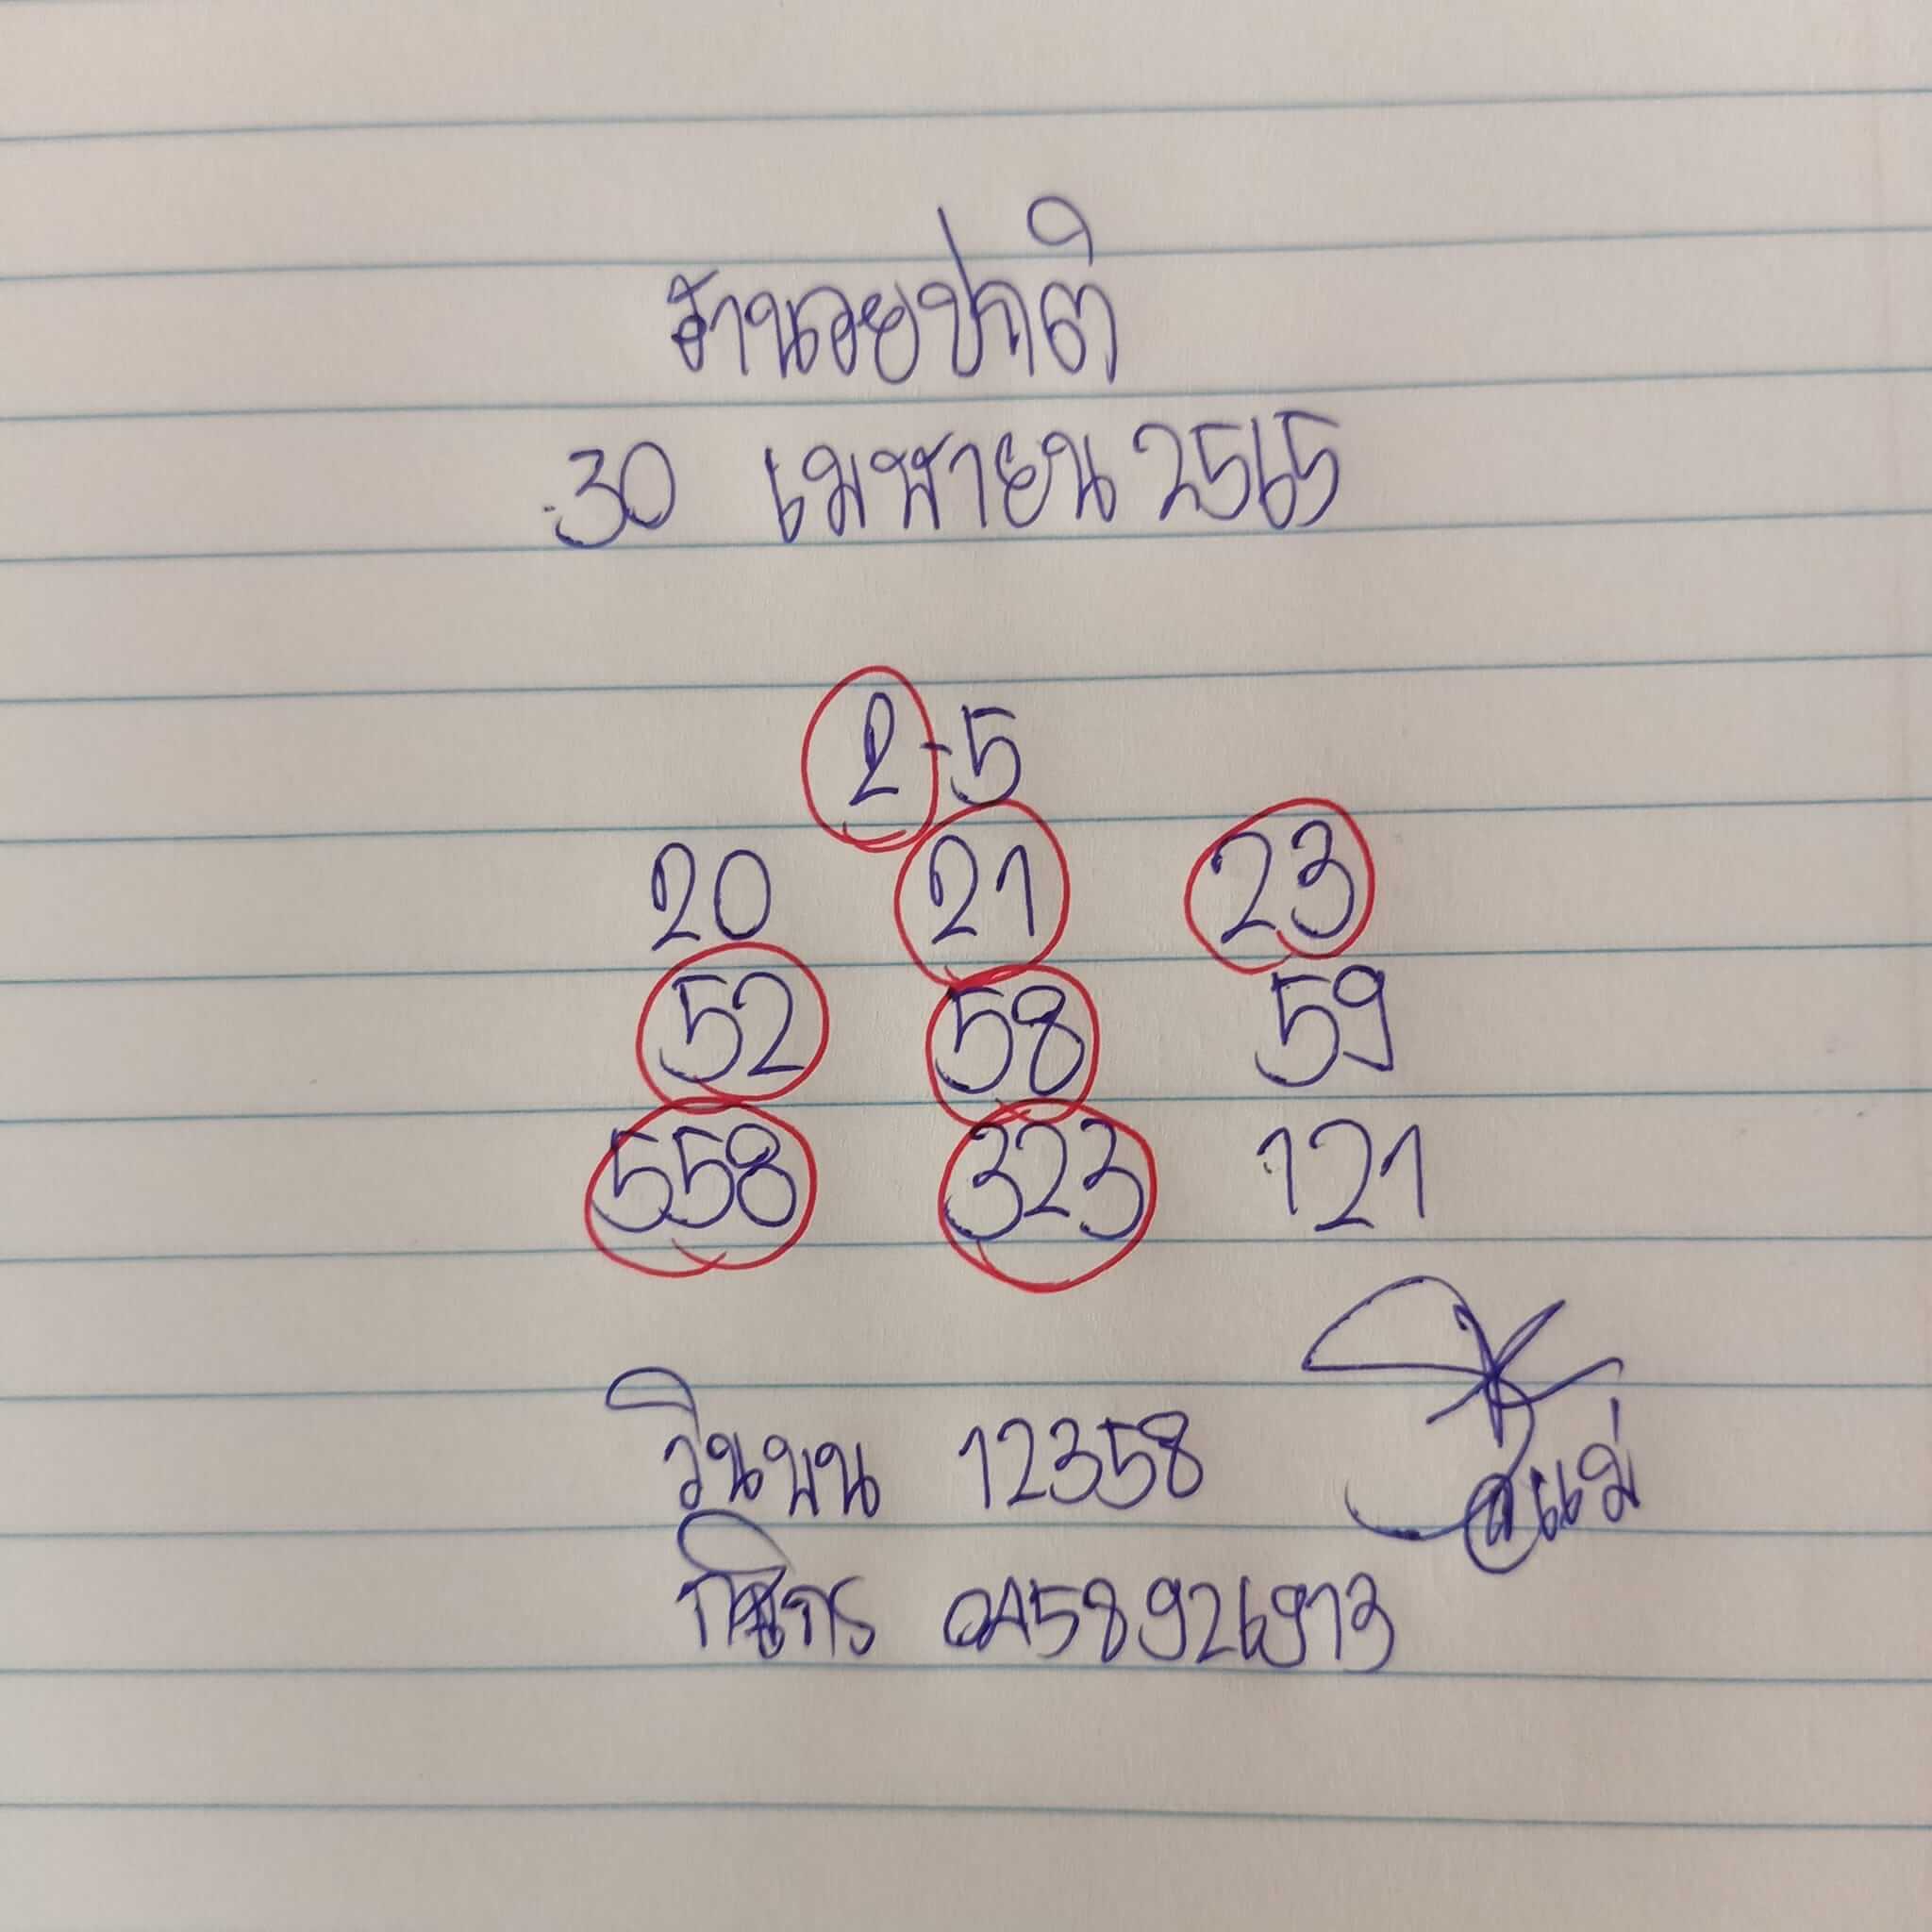 ฮานอยปกติ
30 เมษายน 2565
2-5
20 21 23
52 58 59
558 323 121
วินพน 12358
แม่
0458926973